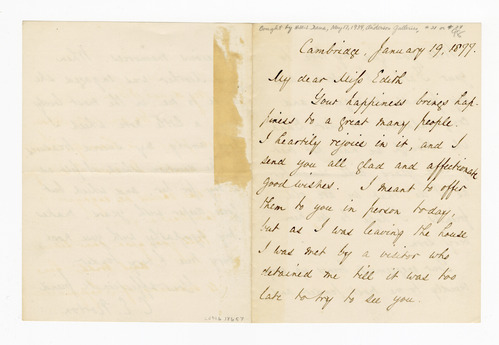 Bought by
May 13, 1929, Anderson Galleries,
Cambridge, January 19, 1897.
My dear Miss Edith
Your happiness brings hap-
piness to a great many people.
I heartily rejoice in it, and I
send you all glad and affectionate
good wishes. I meant to offer
them to you in person today,
but as I was leaving the house
I was met by a visitor who
detained me till it was too
late to try to see you.